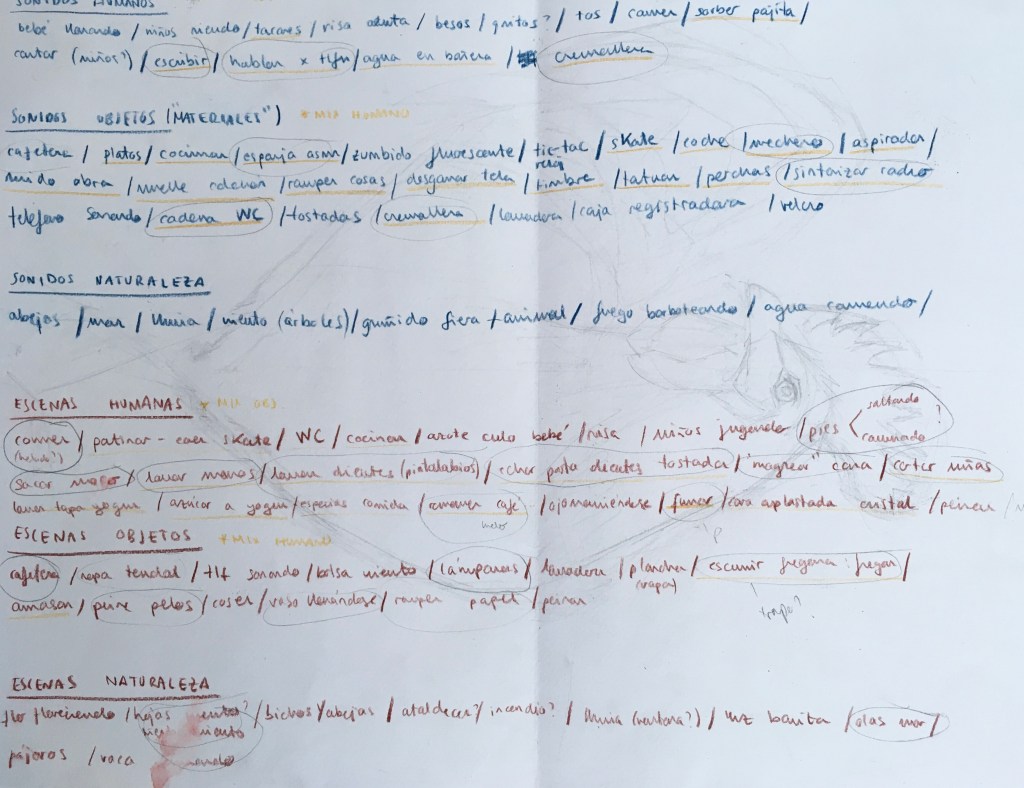 SONIDOS HUMANOS
bebé llorando / niños riendo / tacones / risa adulta / besos / gritos? / tos / comer / sorber pajita /
cantar (niños?) / escribir / hablar x tlfn / agua en bañera / cremallera
SONIDOS OBJETOS ("MATERIALES") * MIX HUMANO
cafetera / platos / cocinar / esponja asmr / zumbido fluorescente / tic-tac reloj / skate / coche / mechero / aspirador /
ruido obra / muelle colchón / romper cosas / desgarrar tela / timbre / tatuar / perchas / sintonizar radio
teléfono sonando / cadena WC / tostadas / cremallera / lavadora / caja registradora / velcro
SONIDOS NATURALEZA
abejas / mar / lluvia / viento (árboles) / gruñido fiera + animal / fuego borboteando / agua corriendo /
ESCENAS HUMANAS * MIX OBJ
comer (helado?) / patinar - caer skate / WC / cocinar / azote culo bebé / risa / niños jugando / pies < saltando caminando ?
sacar moco / lavar manos / lavar dientes (pintalabios) / echar pasta dientes tostada / "magrear" cara / cortar uñas
lamer tapa yogur / azúcar a yogur / especias comida / remover café / ojo moviéndose / fumar / cara aplastada cristal / peinar /
ESCENAS OBJETOS * MIX HUMANO
cafetera / ropa tendal / tlf sonando / bolsa viento / lámparas / lavadora / plancha (vapor) / escurrir fregona: fregar /
trapo?
amasar / peine pelos / coser / vaso llenándose / romper papel / peinar
ESCENAS NATURALEZA
flor floreciendo / hojas viento / bichos / abejas / atardecer? / incendio? / lluvia (ventana?) / luz bonita / olas mar /
pájaros / vaca